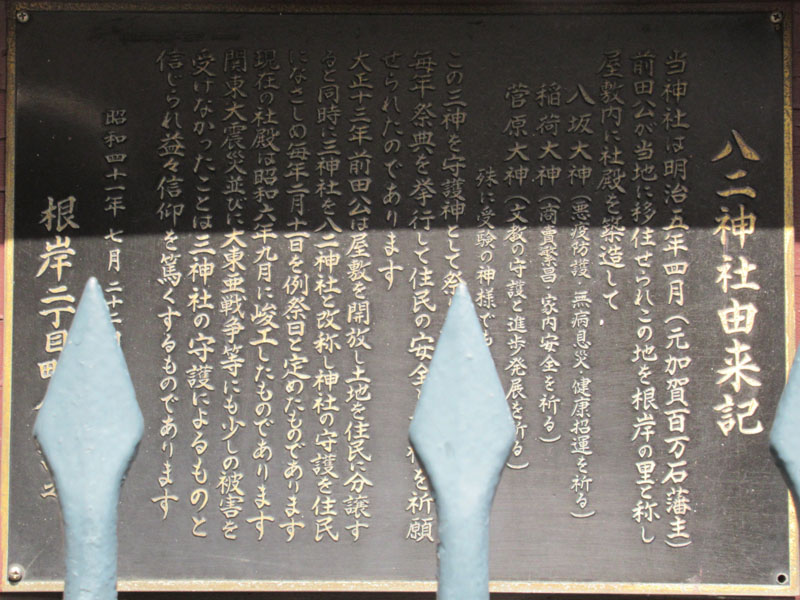 八二神社由来記
当神社は明治五年四月(元加賀百万石藩主)
前田公が当地に移住せられこの地を根岸の里と称し
屋敷内に社殿を築造して
八坂大神(悪疫防護・無病息災・健康招運を祈る)
稲荷大神(商売繁昌・家内安全を祈る)
菅原大神(文教の守護と進歩発展を祈る)
殊に受験の神様でも
この三神を守護神として祭
毎年祭典を挙行して住民の安全 を祈願
せられたのであります
大正十三年前田公は屋敷を開放し土地を住民に分譲す
ると同時に三神社を八二神社と改称し神社の守護を住民
になさしめ毎年二月十一日を例祭日と定めたものであります
現在の社殿は昭和六年九月に峻工したものであります
関東大震災並びに大東亜戦争等にも少しの被害を
受けなかったことは三神社の守護によるものと
信じられ益々信仰を篤くするものであります
昭和四十一年七月二十二
根岸二丁目町